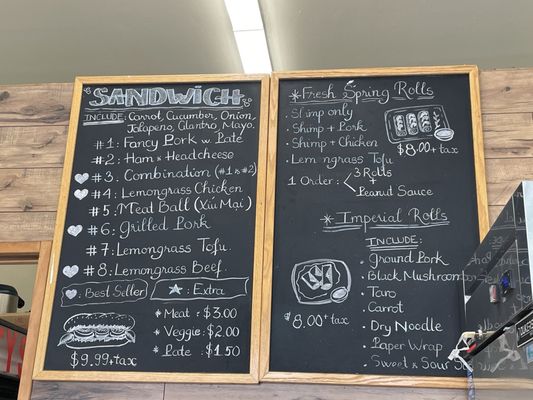 SANDWICH
INCLUDE: Carrot, Cucumber, Onion,
Jalapeno, Cilantro, Mayo.
#1: Fancy Pork w Pate
#2: Ham & Headcheese
#3: Combination (#1 & #2)
#4: Lemongrass Chicken
#5: Meat Ball (Xíu Mại)
#6: Grilled Pork
#7: Lemongrass Tofu.
#8: Lemongrass Beef.
: Best Seller
: Extra
* Meat : $3.00
* Veggie : $2.00
* Pate : $1.50
$9.99+tax
* Fresh Spring Rolls
• Shrimp only
• Shimp + Pork
• Shimp + Chicken
• Lemongrass Tofu
$8.00+tax
1 Order:
3 Rolls
+
Peanut Sauce
* Imperial Rolls
INCLUDE:
Ground Pork
• Black Mushroom
• Taro
• Carrot
• Dry Noodle
• Paper Wrap
• Sweet & Sour
$8.00+tax